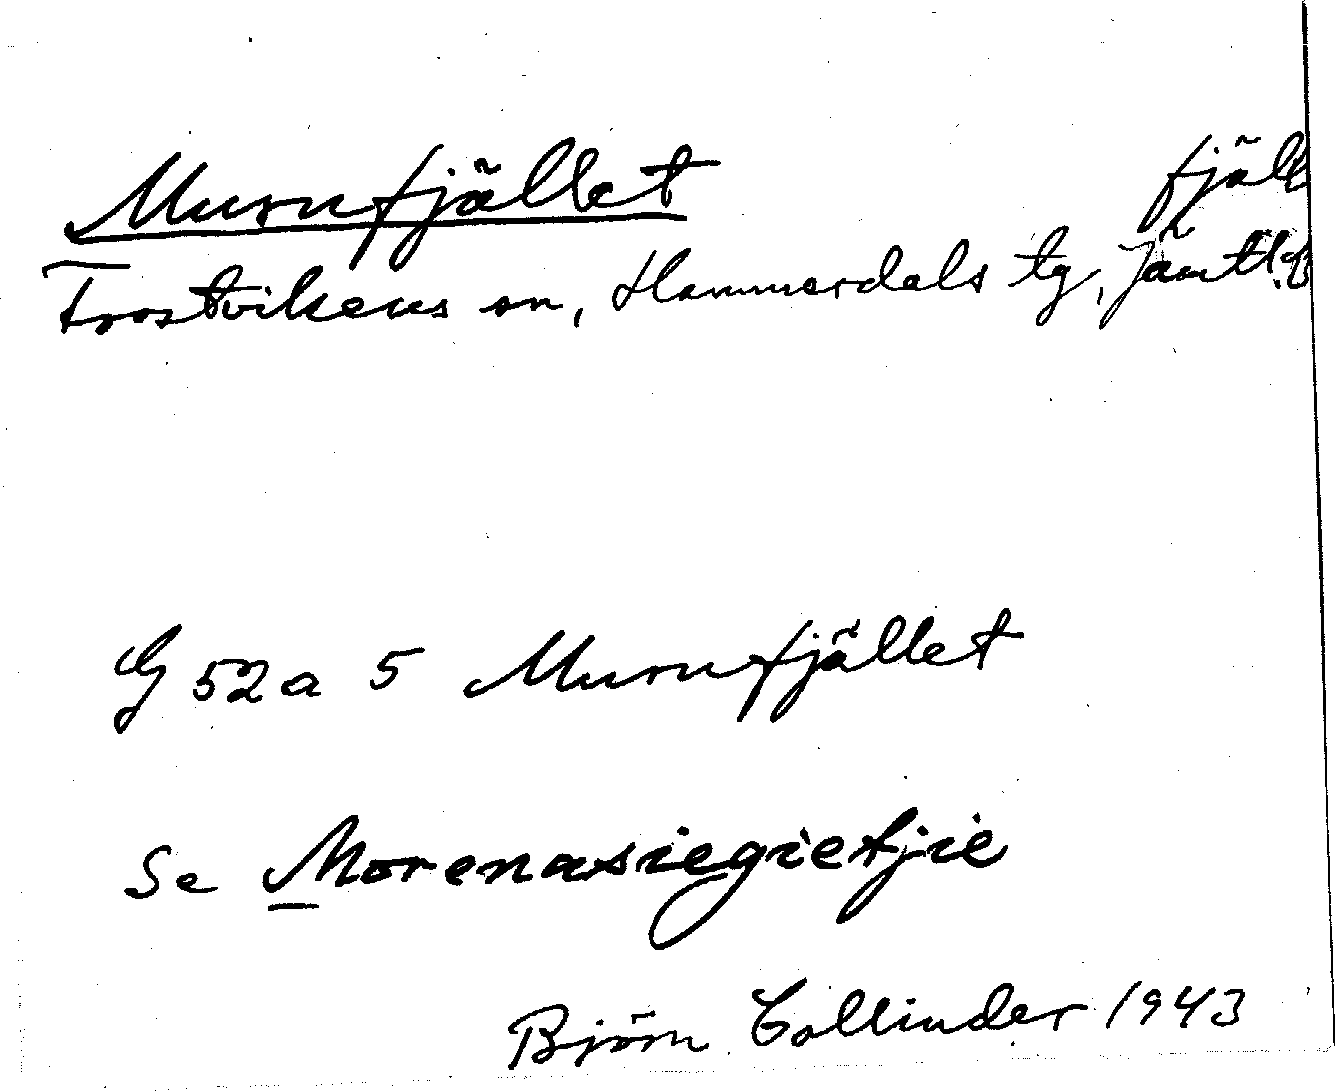 Murufjället fjäll
Frostvikens sn, Hammerdals tg, Jämtl.
G 52 a 5 Murufjället
Se Morenasiegietjie
Björn Collinder 1943